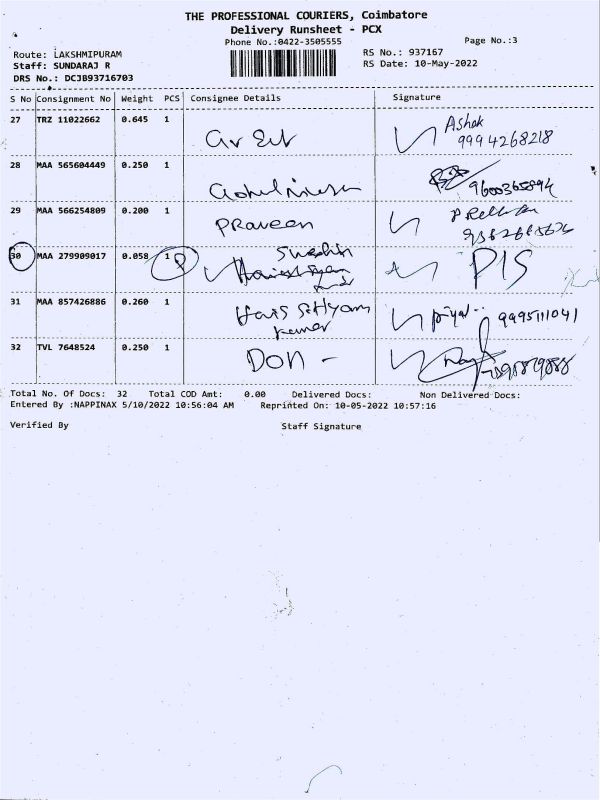 THE PROFESSIONAL COURIERS, Coimbatore
Delivery Runsheet - PCX
Phone No.:0422-3505555
Page No.:3
Route: LAKSHMIPURAM
RS No.: 937167
Staff: SUNDARAJ R
RS Date: 10-May-2022
DRS No.: DCJB93716703
S No Consignment No Weight PCS Consignee Details Signature
27 TRZ 11022662 0.645 1
Ashok
9994268218
28 MAA 565604449 0.250 1
9600365894
29 MAA 566254809 0.200 1
PRaveen
30 MAA 279909017 0.058 1 P
PIS
31 MAA 857426886 0.260 1
Haris Sathyam
kumar
priyal 9995111041
32 TVL 7648524 0.250 1
DON -
Total No. Of Docs: 32 Total COD Amt: 0.00 Delivered Docs: Non Delivered Docs:
Entered By :NAPPINAX 5/10/2022 10:56:04 AM Reprinted On: 10-05-2022 10:57:16
Verified By Staff Signature